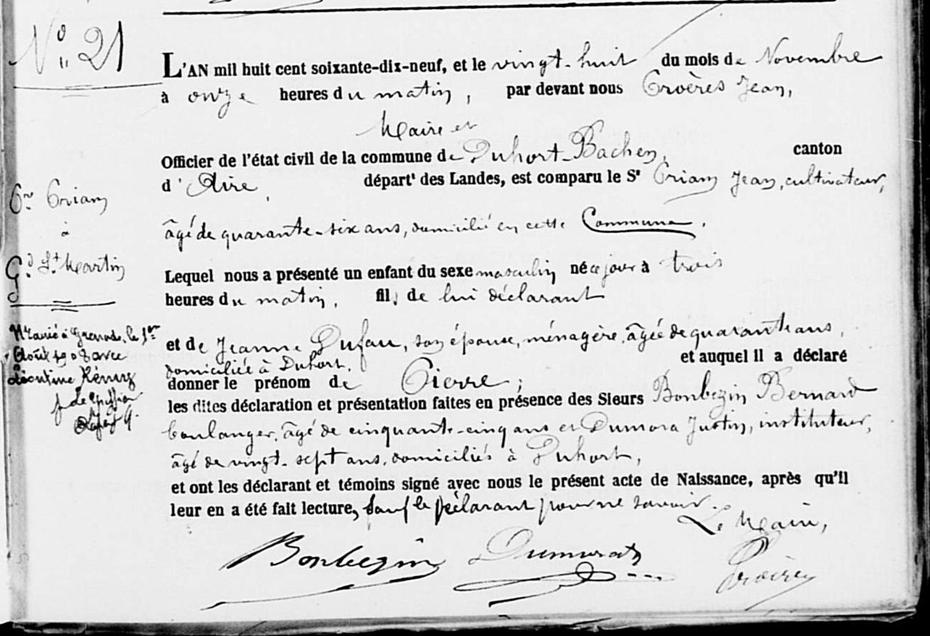 N° 21
L'AN mil huit cent soixante-dix-neuf, et le vingt-huit du mois de Novembre
à onze heures du matin, par devant nous Jean,
Maire et
Officier de l'état civil de la commune de Duhort-Bachen, canton
d'Aire, départ^t des Landes, est comparu le S^r Jean, cultivateur,
âgé de quarante-six ans, domicilié en cette Commune.
à
G^d S^t Martin
Lequel nous a présenté un enfant du sexe masculin né ce jour à trois
heures du matin, fils de lui déclarant
et de Jeanne Dufau, son épouse, ménagère, âgée de quarante ans,
domiciliée à Duhort, et auquel il a déclaré
donner le prénom de Pierre;
les dites déclaration et présentation faites en présence des Sieurs Bonbezin Bernard
boulanger, âgé de cinquante-cinq ans et Dumora Justin, instituteur,
âgé de vingt-sept ans, domiciliés à Duhort,
et ont les déclarant et témoins signé avec nous le présent acte de Naissance, après qu'il
leur en a été fait lecture, sauf le déclarant pour ne savoir.
Le Maire,
Marié à Grenade, le 1er
Août 1908 avec
Léontine
Bonbezin Dumora